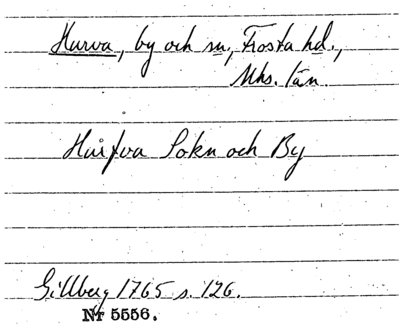 Hurva, by och sn, Frosta hd.,
Mhs. län.
Hurfva Sokn och By
Gillberg 1765 s. 126.
Nr 5556.